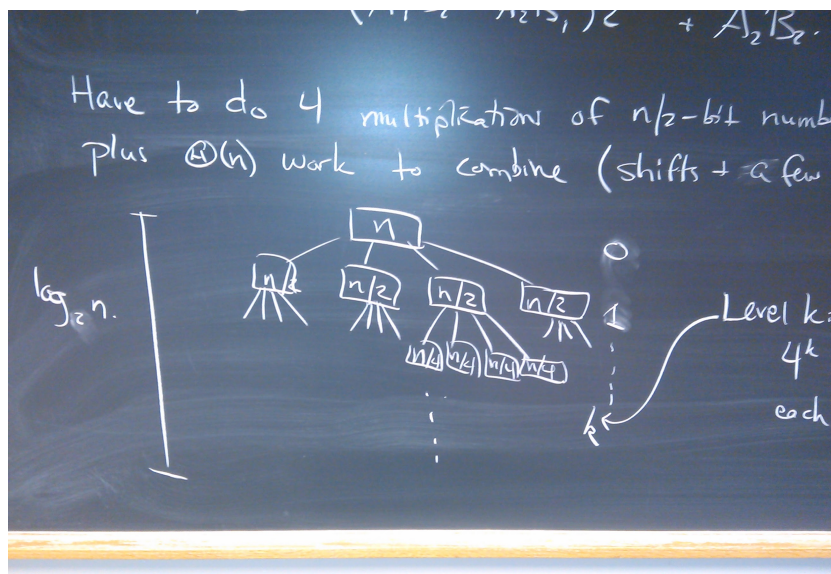 + A₂B₂.
Have to do 4 multiplications of n/2-bit numb
plus Θ(n) work to combine (shifts + a few
n
0
n/2 n/2 n/2 n/2
log₂ n.
1
Level k:
n/4 n/4 n/4 n/4
4ᵏ
each
k